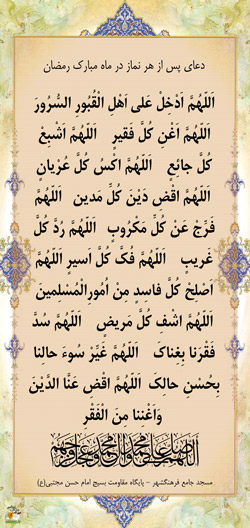 دعای پس از هر نماز در ماه مبارک رمضان
اَللّهُمَّ اَدْخِلْ عَلی اَهْلِ الْقُبُورِ السُّرُورَ
اَللّهُمَّ اَغْنِ کُلَّ فَقیرٍ اَللّهُمَّ اَشْبِعْ
کُلَّ جائِعٍ اَللّهُمَّ اکْسُ کُلَّ عُرْیانٍ
اَللّهُمَّ اقْضِ دَیْنَ کُلِّ مَدینٍ اَللّهُمَّ
فَرِّجْ عَنْ کُلِّ مَکْرُوبٍ اَللّهُمَّ رُدَّ کُلَّ
غَریبٍ اَللّهُمَّ فُکَّ کُلَّ اَسیرٍ اَللّهُمَّ
اَصْلِحْ کُلَّ فاسِدٍ مِنْ اُمُورِالْمُسْلِمینَ
اَللّهُمَّ اشْفِ کُلَّ مَریضٍ اَللّهُمَّ سُدَّ
فَقْرَنا بِغِناکَ اَللّهُمَّ غَیِّرْ سُوءَ حالِنا
بِحُسْنِ حالِکَ اَللّهُمَّ اقْضِ عَنَّا الدَّیْنَ
وَاَغْنِنا مِنَ الْفَقْرِ
اللهم صل علی محمد و آل محمد و عجل فرجهم
مسجد جامع فرهنگشهر - پایگاه مقاومت بسیج امام حسن مجتبی(ع)